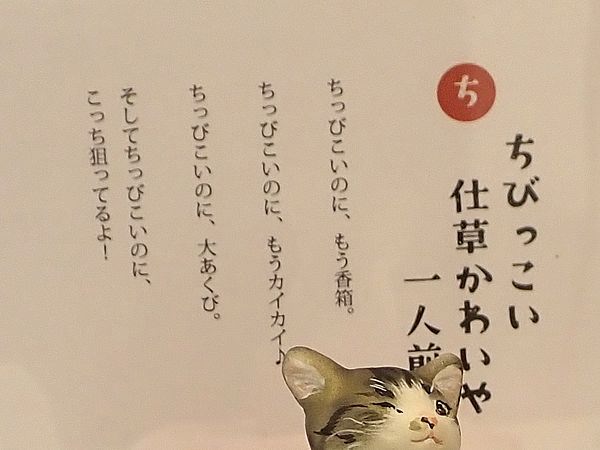 ち
ちびっこい
仕草かわいや
一人前
ちっびこいのに、もう香箱。
ちっびこいのに、もうカイカイ♪
ちっびこいのに、大あくび。
そしてちっびこいのに、
こっち狙ってるよ!